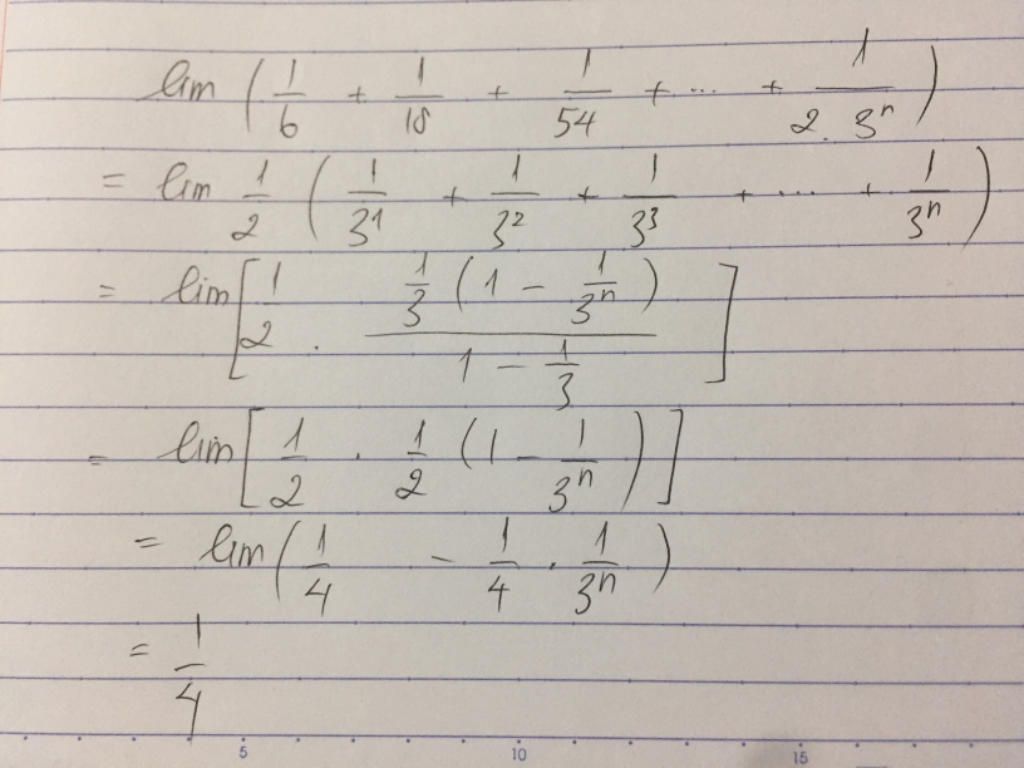 lim (1/6 + 1/18 + 1/54 + ... + 1/(2. 3^n))
= lim 1/2 (1/3^1 + 1/3^2 + 1/3^3 + ... + 1/3^n)
= lim [1/2 . (1/3 (1 - 1/3^n))/(1 - 1/3)]
= lim [1/2 . 1/2 (1 - 1/3^n)]
= lim (1/4 - 1/4 . 1/3^n)
= 1/4
5 10 15